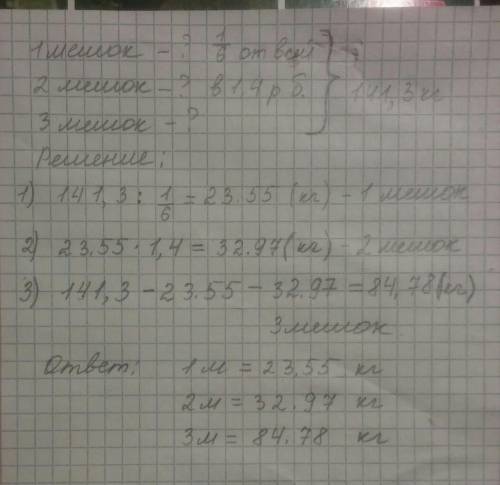 1 мешок - ? 1/6 от всей
2 мешок - ? в 1,4 р б. 141,3 кг
3 мешок - ?
Решение:
1) 141,3 : 1/6 = 23.55 (кг) - 1 мешок
2) 23.55 · 1,4 = 32.97 (кг) - 2 мешок
3) 141,3 - 23.55 - 32.97 = 84,78 (кг)
3 мешок.
Ответ: 1 м = 23,55 кг
2 м = 32.97 кг
3 м = 84.78 кг